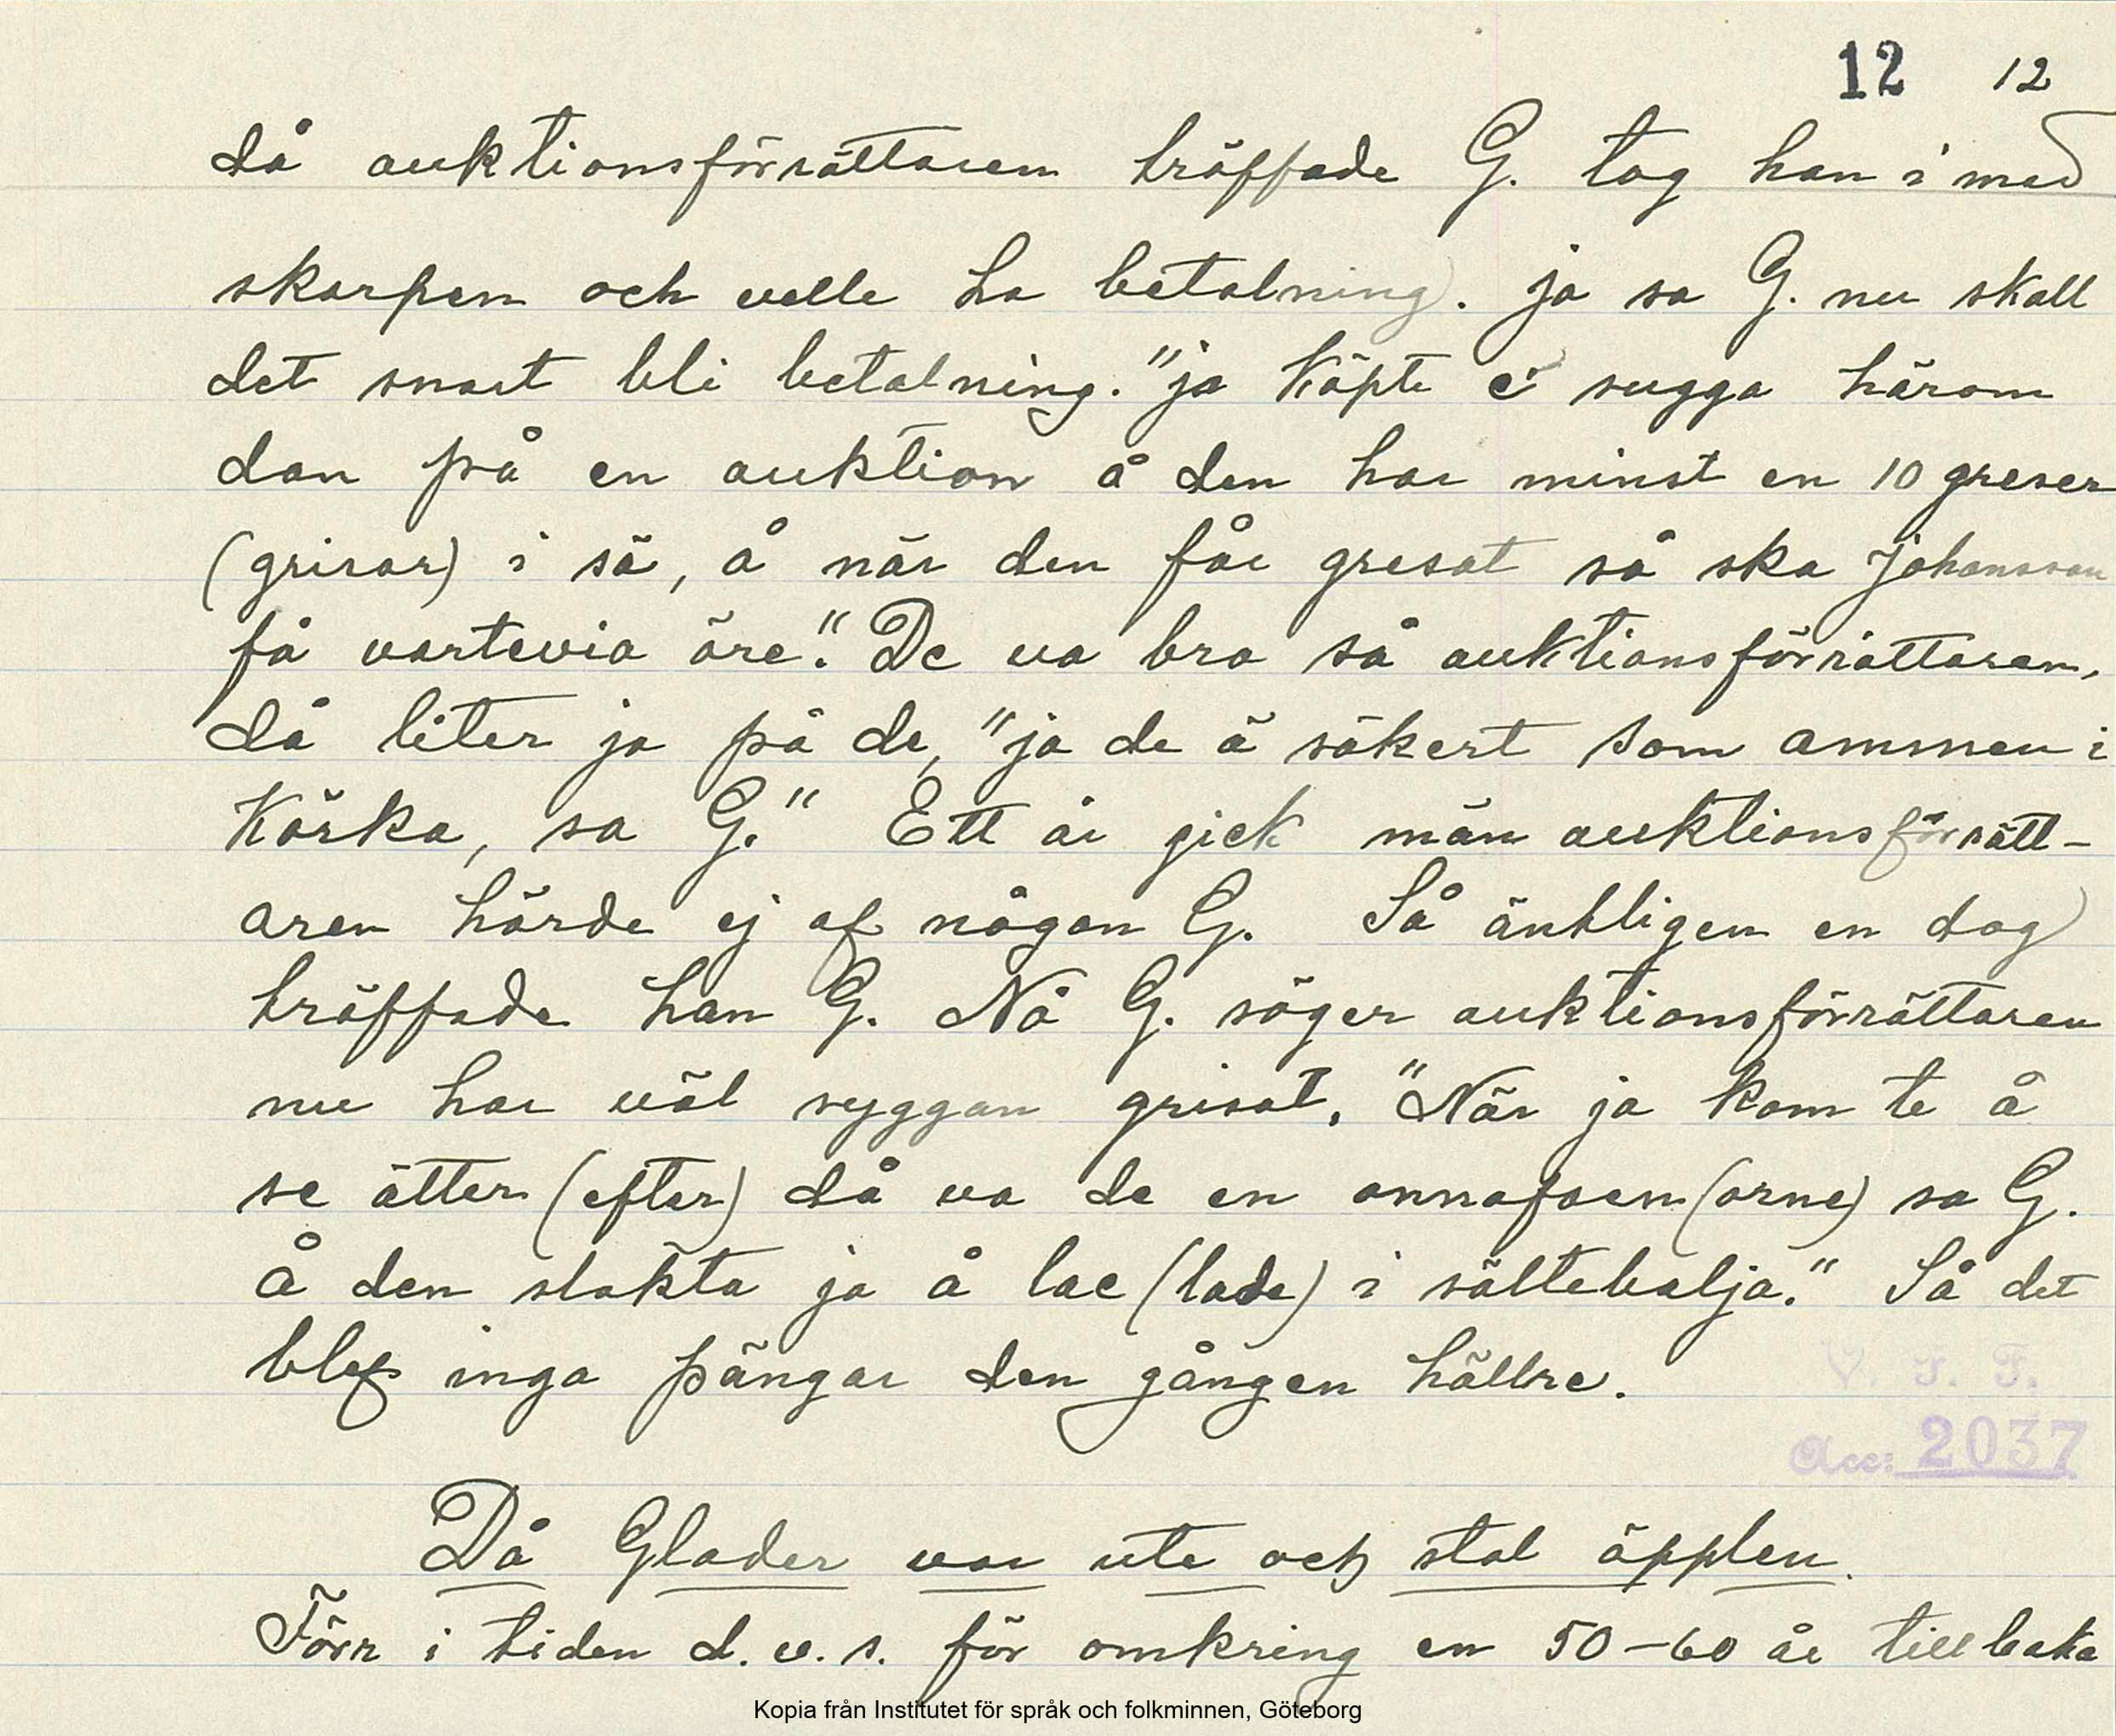 12 12
då auktionsförrättaren träffade G. tog han i med
skarpen och velle ha betalning. ja sa G. nu skall
det snart bli betalning. "ja köpte ei sugga härom
dan på en auktion å den har minst en 10 greser
(grisar) i sä, å när den får gresat så ska Johansson
få vartevia öre." De va bra så auktionsförrättaren,
då liter ja på de, "ja de ä säkert som ammen i
Körka, sa G." Ett år gick män auktionsförrätt-
aren hörde ej af någon G. Så äntligen en dag
träffade han G. Nå G. säger auktionsförrättaren
nu har väl syggan grisat. "När ja kom te å
se ätter (efter) då va de en annafaen (orne) sa G.
Å den slakta ja å lae (lade) i sältebalja." Så det
blef inga pängar den gången hällre.
V. F. F.
Acc: 2037
Då Glader var ute och stal äpplen.
Förr i tiden d.v.s. för omkring en 50-60 år tillbaka
Kopia från Institutet för språk och folkminnen, Göteborg